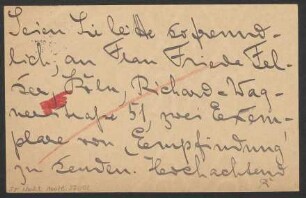 Seien Sie bitte so freund-
lich, an Frau Frieda Fel-
ser, Köln, Richard-Wag-
nerstraße 51, zwei Exem-
plare von „Empfindung"
zu senden. Hochachtend